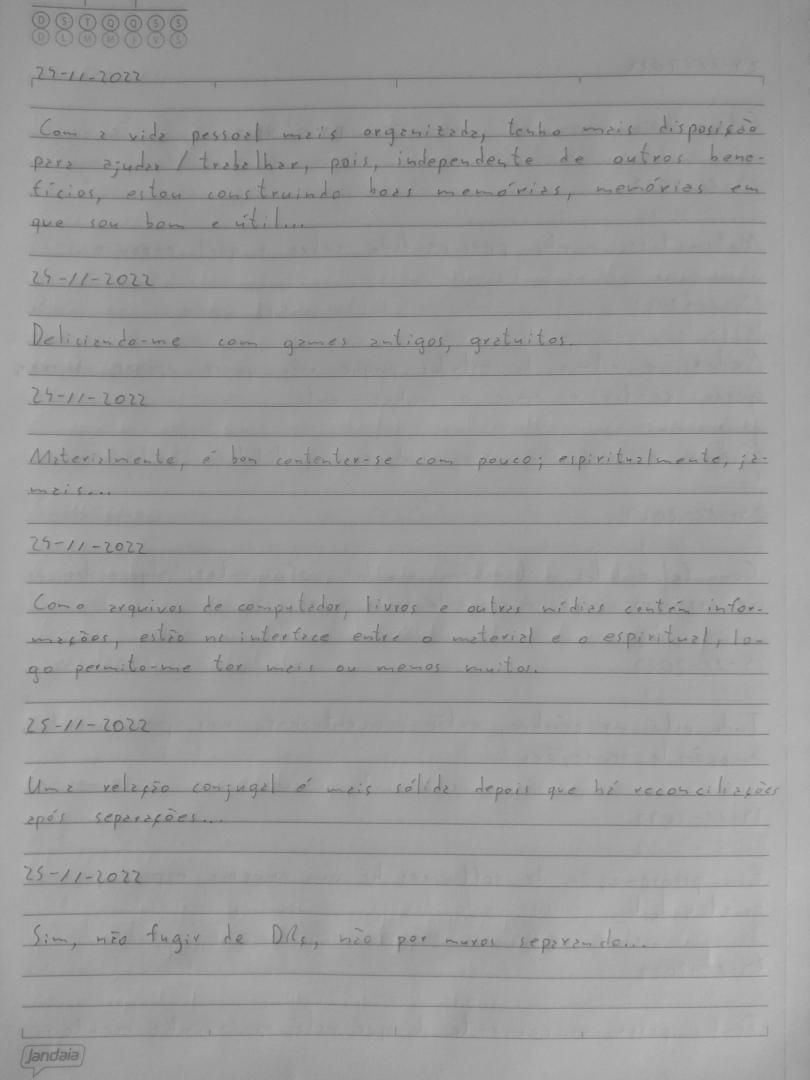 D S T Q Q S S
D L M M J V S
24-11-2022
Com a vida pessoal mais organizada, tenho mais disposição
para ajudar / trabalhar, pois, independente de outros bene-
fícios, estou construindo boas memórias, memórias em
que sou bom e útil...
24-11-2022
Deliciando-me com games antigos, gratuitos.
24-11-2022
Materialmente, é bom contentar-se com pouco; espiritualmente, ja-
mais...
24-11-2022
Como arquivos de computador, livros e outras mídias contém infor-
mações, estão na interface entre o material e o espiritual, lo-
go permito-me ter mais ou menos muitos.
25-11-2022
Uma relação conjugal é mais sólida depois que há reconciliações
após separações...
25-11-2022
Sim, não fugir de DRs, não por muros separando...
Jandaia